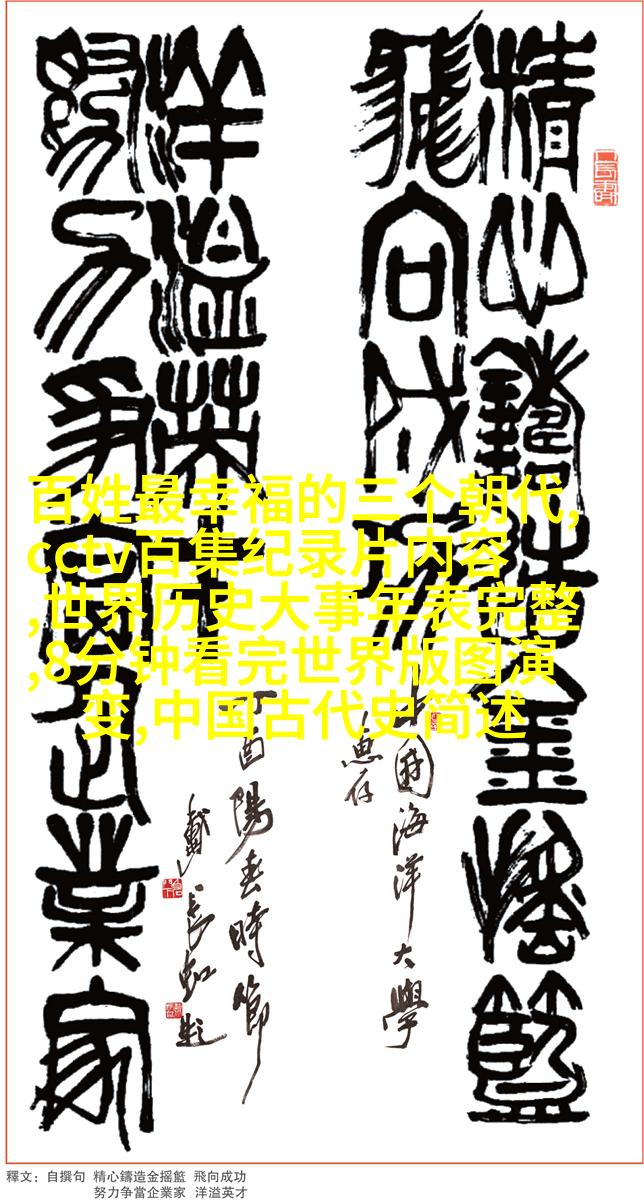 精心鑄造金摇籃
飛向成功
中國海洋大學
惠存
努力争當企業家
洋溢英才
丁酉陽春時節
戴長虹題
百姓最幸福的三个朝代,
cctv百集纪录片内容
,世界历史大事年表完整
,8分钟看完世界版图演
变,中国古代史简述
釋文：自撰句 精心鑄造金摇籃 飛向成功
努力争當企業家 洋溢英才